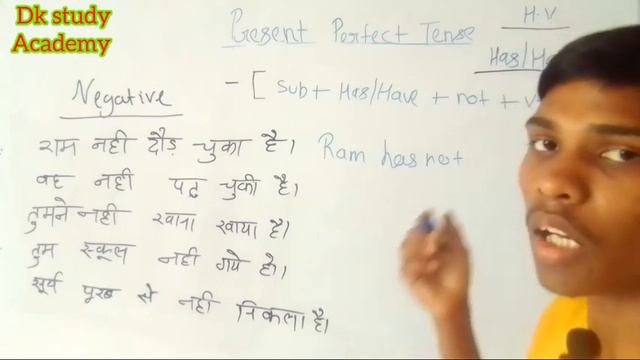 Dk study
Academy
Present Perfect Tense
H.V
Has/Ha
Negative
- [ Sub + Has/Have + not + V
राम नही दौड़ चुका है।
Ram has not
वह नही पढ़ चुकी है।
तुमने नही खाना खाया है।
तुम स्कूल नही गये हो।
सूर्य पूरब से नही निकला है।